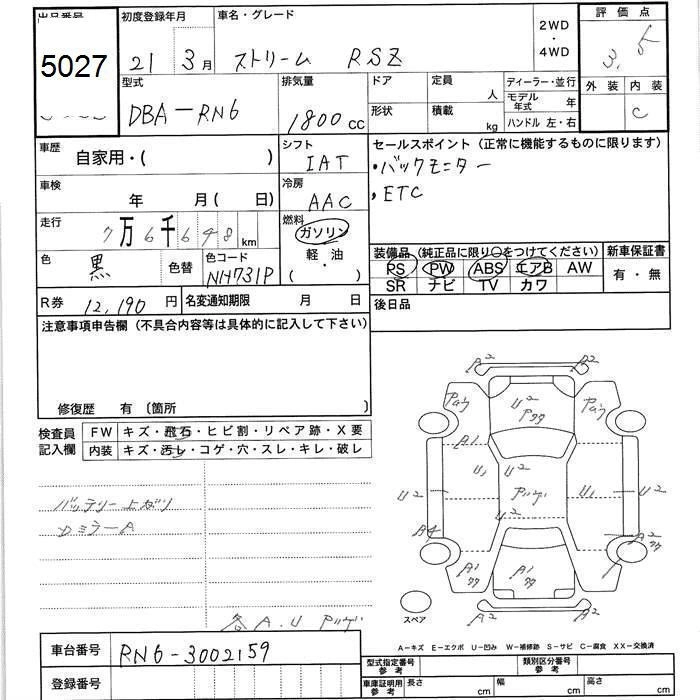 出品番号 初度登録年月 車名・グレード 2WD・4WD 評価点
5027 21 3月 ストリーム RSZ 3.5
型式 排気量 ドア 定員 人 ディーラー・並行 外装 内装
DBA-RN6 1800cc 形状 積載 kg モデル年式 年 C
ハンドル 左・右
車歴 自家用・( ) シフト IAT セールスポイント (正常に機能するものに限ります)
・バックモニター
車検 年 月( 日) 冷房 AAC ・ETC
走行 7万6千648km 燃料 ガソリン 軽・油 ( )
装備品 (純正品に限り○をつけてください) 新車保証書
色 黒 色替 色コード NH731P PS PW ABS エアB AW 有・無
SR ナビ TV カワ
R券 12,190円 名変通知期限 月 日 後日品
注意事項申告欄 (不具合内容等は具体的に記入して下さい)
修復歴 有 〔箇所 〕
検査員記入欄 FW キズ・飛石・ヒビ割・リペア跡・X要
内装 キズ・汚レ・コゲ・穴・スレ・キレ・破レ
バッテリー上がり
Dミラー A
各A.U アツゲ
A2 A2
U2
A1
U1 U2
U2 U1 U2
U2
A4 A2
A1 A1 A2
A2 A2
スペア
A-キズ E-エクボ U-凹み W-補修跡 S-サビ C-腐食 XX-交換済
車台番号 RN6-3002159 型式指定番号 参考 類別区分番号 参考
登録番号 車庫証明用 参考 長さ cm 幅 cm 高さ cm